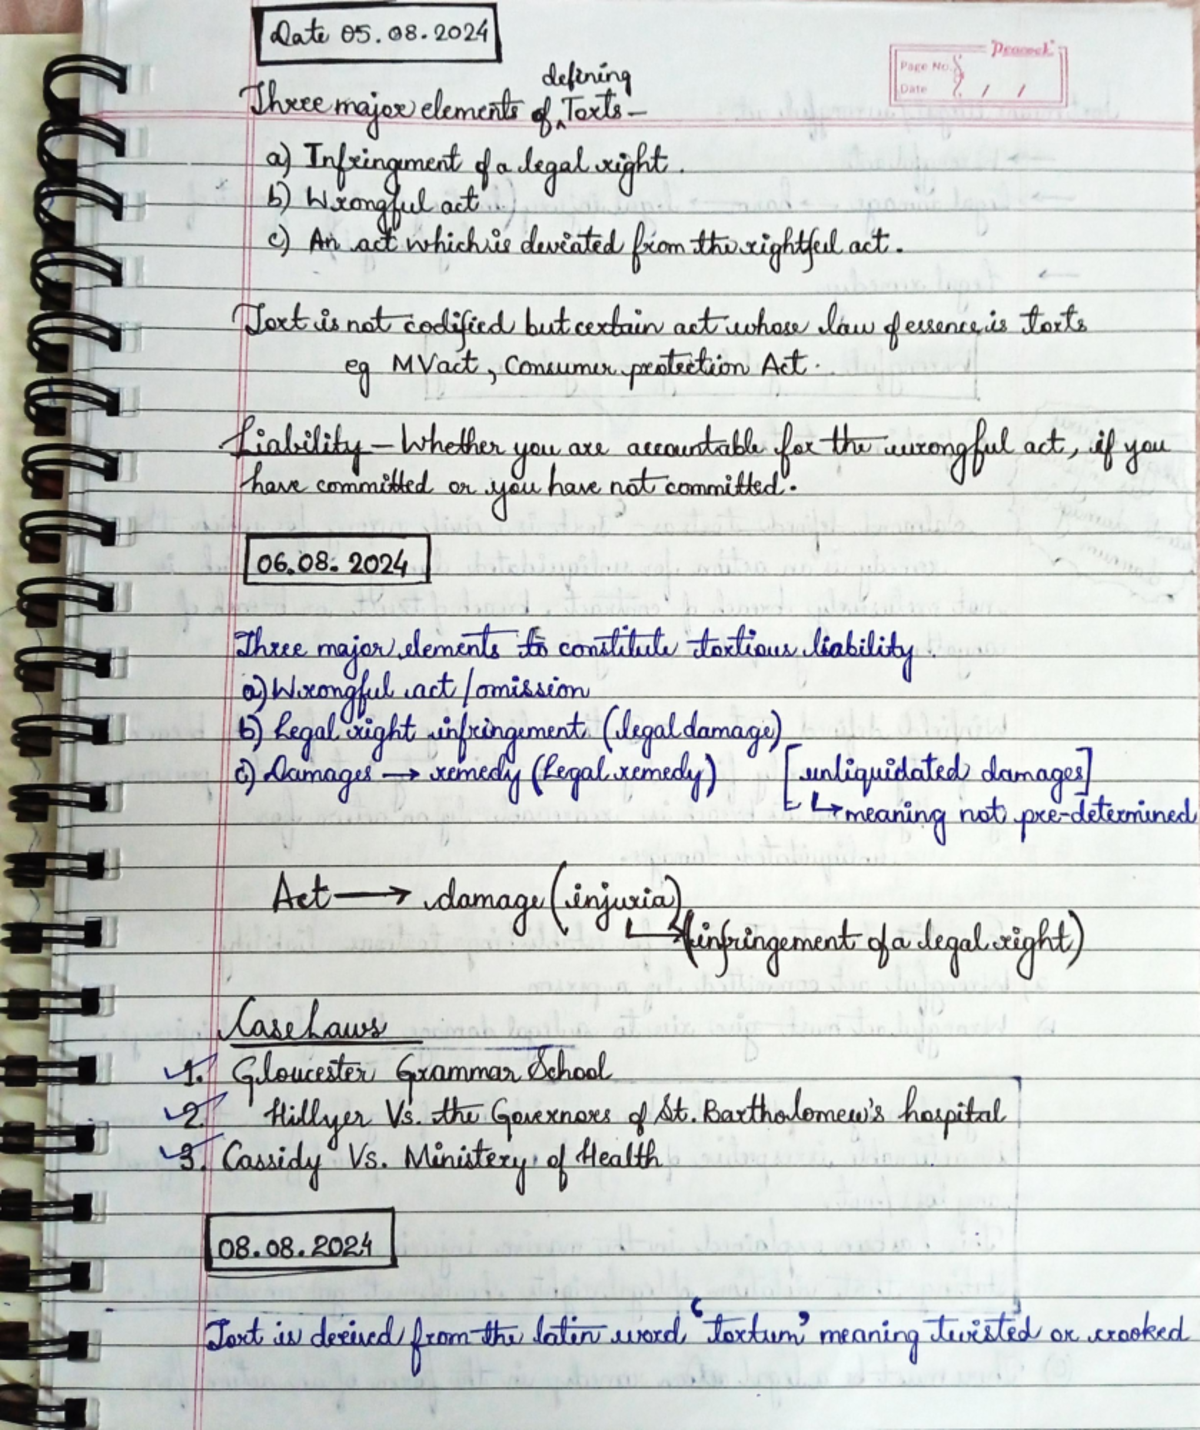 Date 05.08.2024
Peacock
Page No.
Date / /
defining
Three major elements of ^ Torts –
a) Infringment of a legal right.
b) Wrongful act
c) An act which is deviated from the rightful act.
Tort is not codified but certain act whose law of essence is torts
eg MV act, Consumer protection Act.
Liability – Whether you are accountable for the wrongful act, if you
have committed or you have not committed.
06.08.2024
Three major elements to constitute tortious liability.
a) Wrongful act / omission
b) Legal right infringement (legal damage)
c) Damages → remedy (Legal remedy) [unliquidated damages]
↳ meaning not pre-determined
Act → damage (injuria)
↳ (infringement of a legal right)
Case Laws
1. Gloucester Grammar School
2. Hillyer Vs. the Governors of St. Bartholomew's hospital
3. Cassidy Vs. Ministery of Health
08.08.2024
Tort is derived from the latin word 'tortum' meaning twisted or crooked